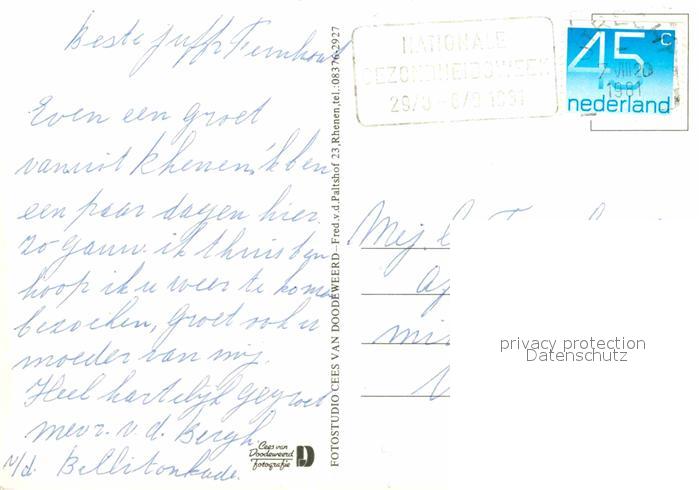 Beste Juffr Fernhout
Even een groet
vanuit Rhenen, 'k ben
een paar dagen hier.
Zo gauw ik thuis ben
hoop ik u weer te komen
bezoeken, Groet ook u
moeder van mij.
Heel hartelijk gegroet
mevr. v. d. Bergh
v/d. Billitonkade.
FOTOSTUDIO CEES VAN DOODEWEERD – Fred. v. d. Paltshof 23, Rhenen, tel.: 08376-2927
Cees van
Doodeweerd
fotografie
NATIONALE
GEZONDHEIDSWEEK
29/8 - 6/9 1981
45 c
nederland
7 VIII 20
1981
Mej
privacy protection
Datenschutz